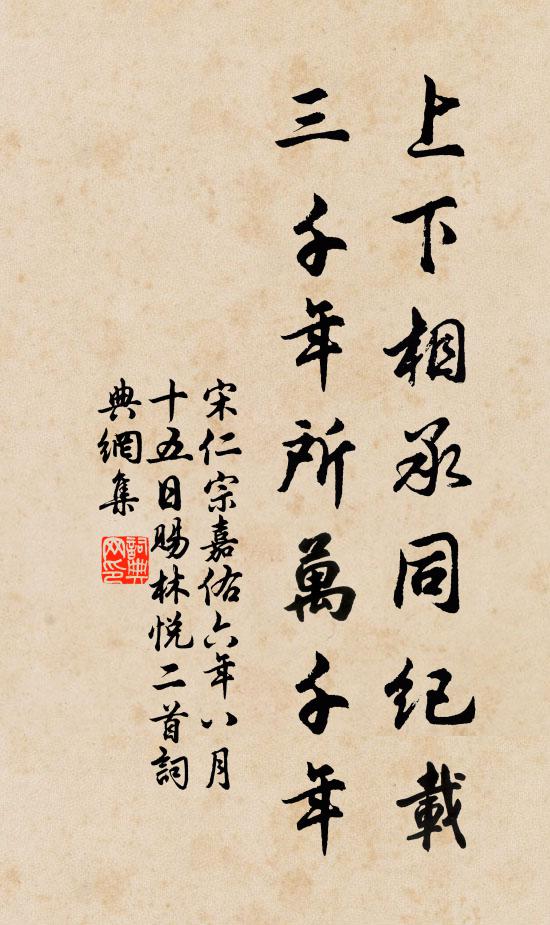 上下相承同紀載
三千年所萬千年
宋仁宗嘉佑六年八月
十五日賜林悅二首詞
典網集
詞典網印